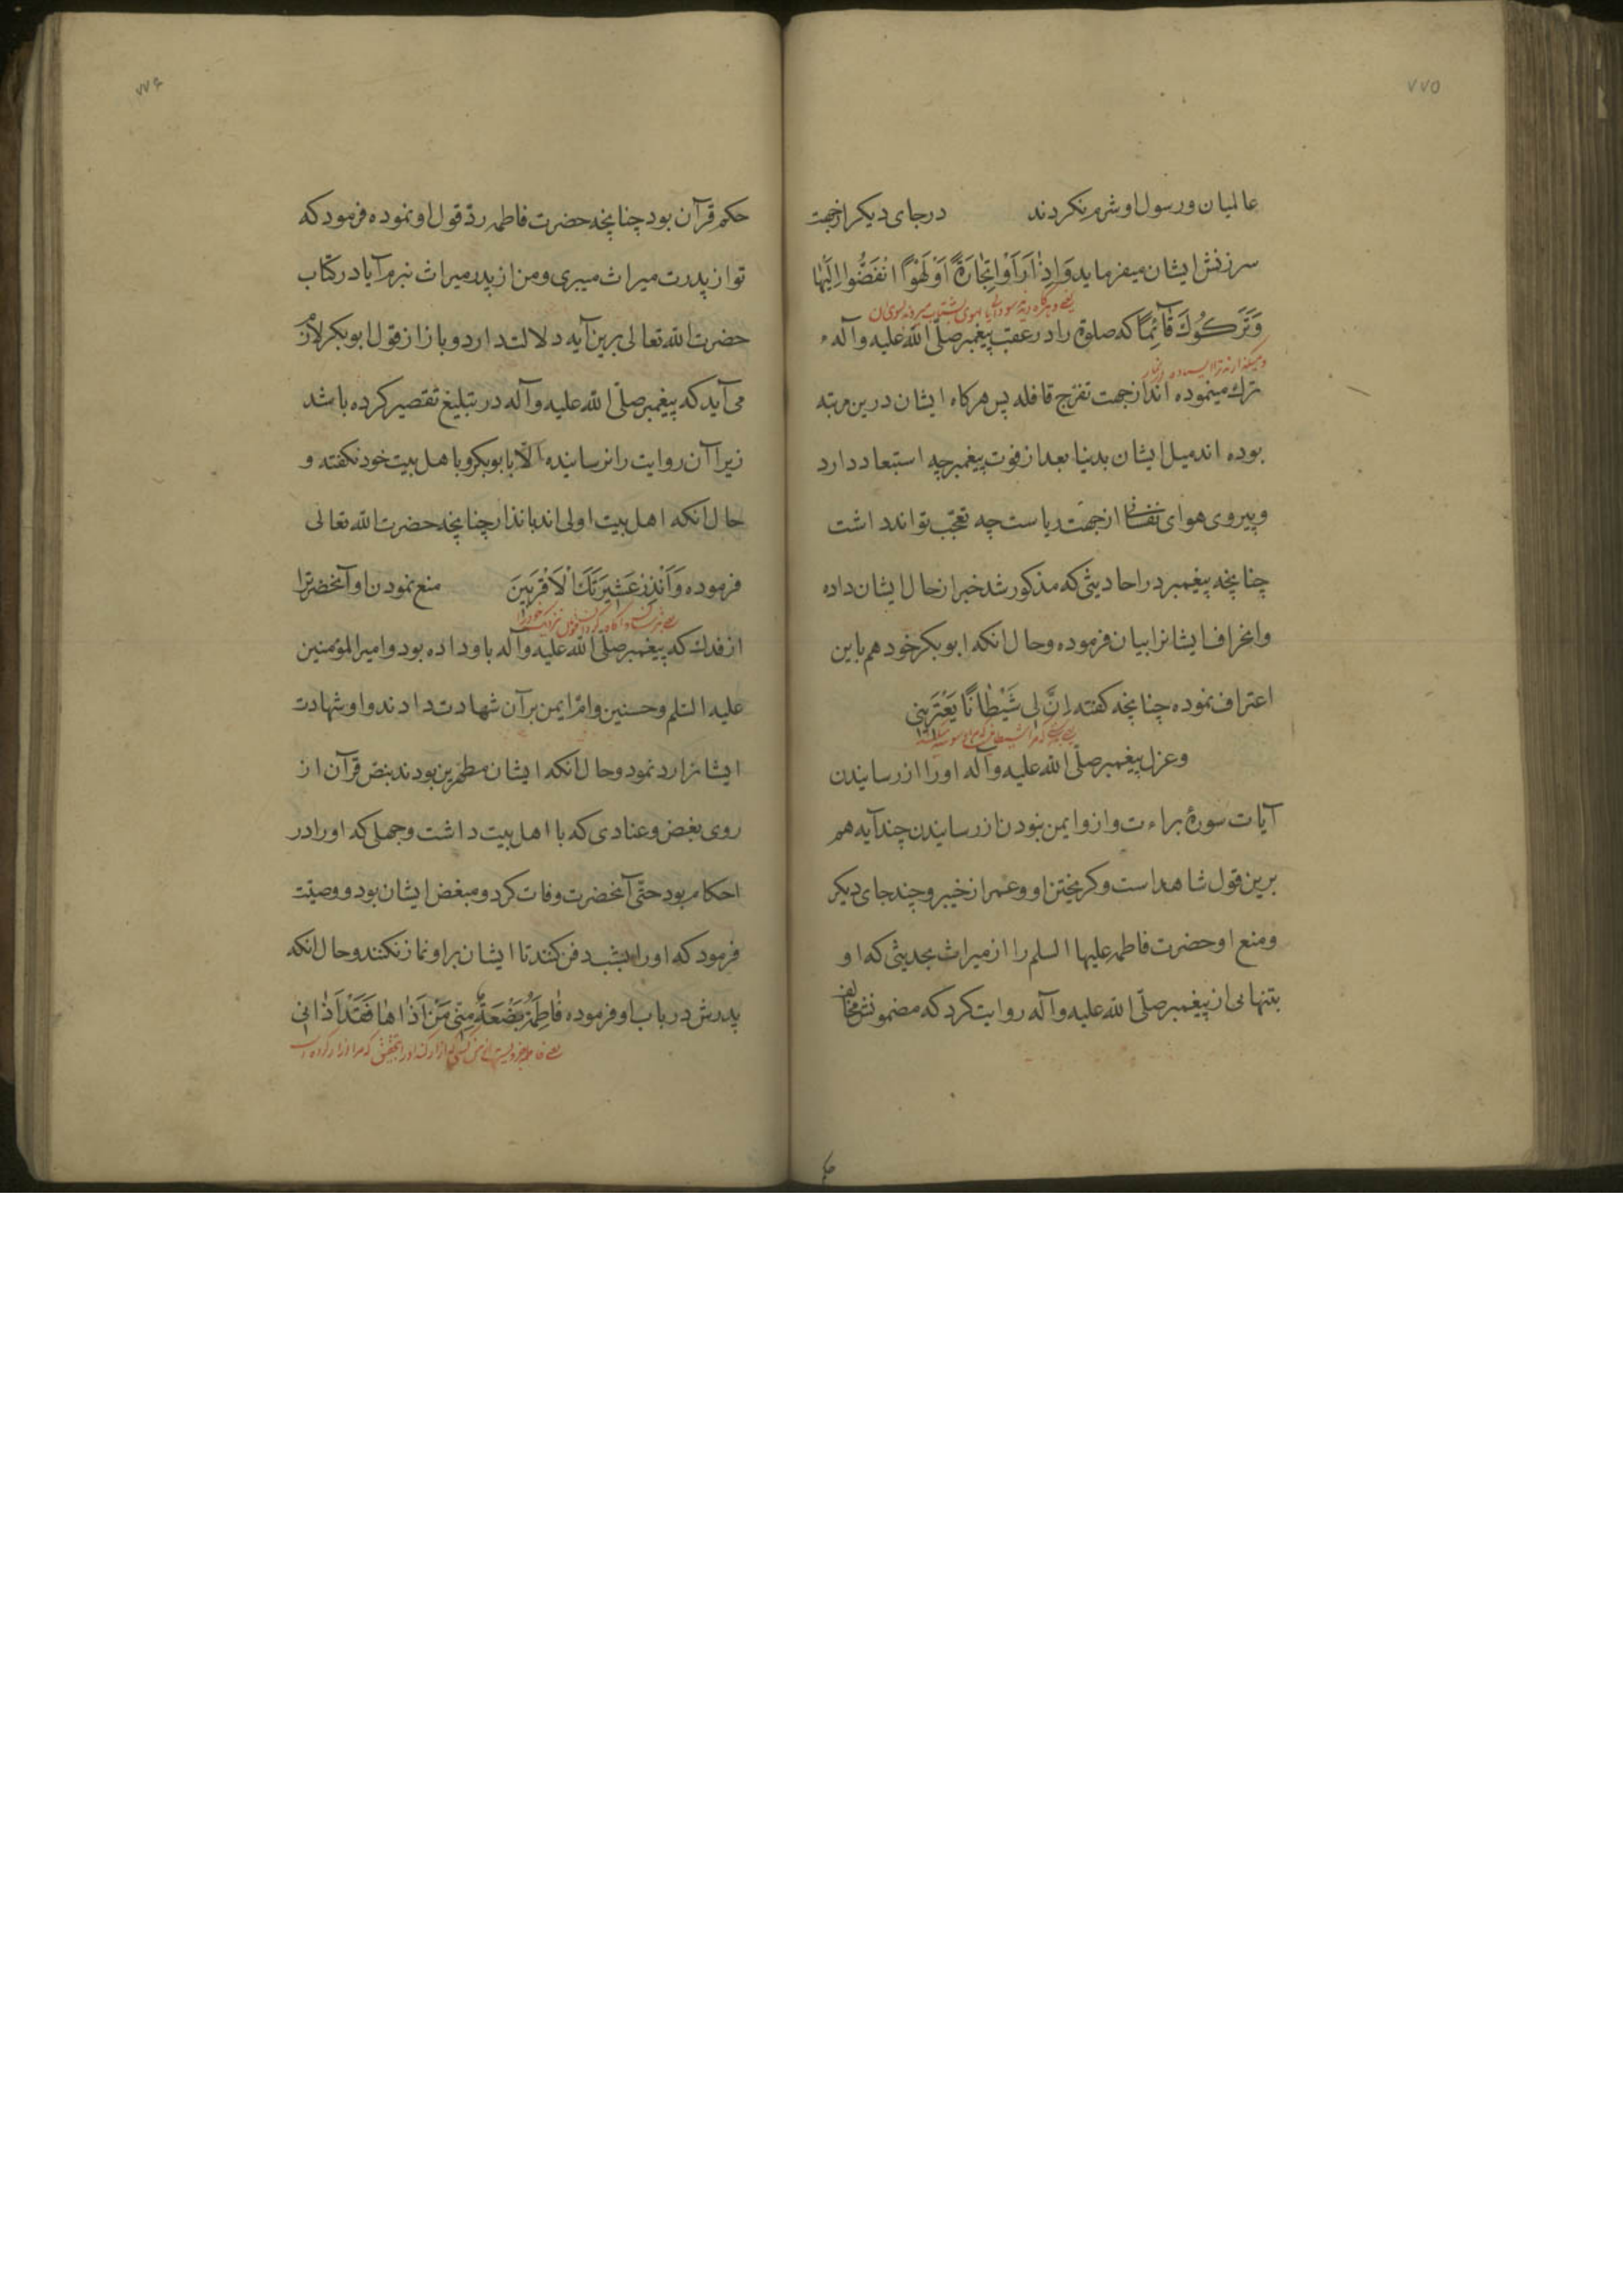 ٧٧٥
عالمیان و رسول او شرم نکردند در جای دیکر از جهت
سرزنش ایشان میفرماید وَاِذٰا رَاَوْا تِجٰارَةً اَوْ لَهْوًا انْفَضُّوا اِلَیْهٰا
وَتَرَكُوكَ قٰآئِمًا که صلوة را در عقب پیغمبر صلّی اللّه علیه و آله
ترك مینموده اند از جهت تفرّج قافله پس هرکاه ایشان درین مرتبه
بوده اند میل ایشان بدنیا بعد از فوت پیغمبر چه استبعاد دارد
و پیروی هوای نفسانی از جهت ریاست چه تعجّب تواند داشت
چنانچه پیغمبر در احادیثی که مذکور شد خبر از حال ایشان داده
و انحراف ایشانرا بیان فرموده و حال انکه ابوبکر خود هم باین
اعتراف نموده چنانچه کفته اِنَّ لِی شَیْطٰانًا یَعْتَرِینِی
و عزل پیغمبر صلّی اللّه علیه و آله او را از رسانیدن
آیات سورۀ براءت و ازو ایمن نبودن از رسانیدن چند آیه هم
برین قول شاهد است و کریختن او و عمر از خیبر و چند جای دیکر
و منع او حضرت فاطمه علیها السلم را از میراث بحدیثی که او
بتنهائی از پیغمبر صلّی اللّه علیه و آله روایت کرد که مضمونش مخالف
٧٧۶
حکم قرآن بود چنانچه حضرت فاطمه ردّ قول او نموده فرمود که
تو از پدرت میراث میبری و من از پدر میراث نبرم آیا در کتاب
حضرت اللّه تعالی برین آیه دلالت دارد و باز از قول ابوبکر لازم
می آید که پیغمبر صلّی اللّه علیه و آله در تبلیغ تقصیر کرده باشد
زیرا آن روایت را نرسانیده الّا بابوبکر و با اهل بیت خود نکفته و
حال انکه اهل بیت اولی اند بانذار چنانچه حضرت اللّه تعالی
فرموده وَاَنْذِرْ عَشِیرَتَكَ الْاَقْرَبِینَ منع نمودن او آنحضرترا
از فدك که پیغمبر صلّی اللّه علیه و آله باو داده بود و امیر المؤمنین
علیه السّلم و حسنین و امّ ایمن بر آن شهادت دادند و او شهادت
ایشانرا رد نمود و حال انکه ایشان مطهّرین بودند بنصّ قرآن از
روی بغض و عنادی که با اهل بیت داشت و جهلی که او را در
احکام بود حتّی آنحضرت وفات کرد و مبغض ایشان بود و وصیّت
فرمود که او را بشب دفن کنند تا ایشان بر او نماز نکنند و حال انکه
پدرش در باب او فرموده فٰاطِمَةُ بَضْعَةٌ مِنِّی مَنْ اٰذٰاهٰا فَقَدْ اٰذٰانِی